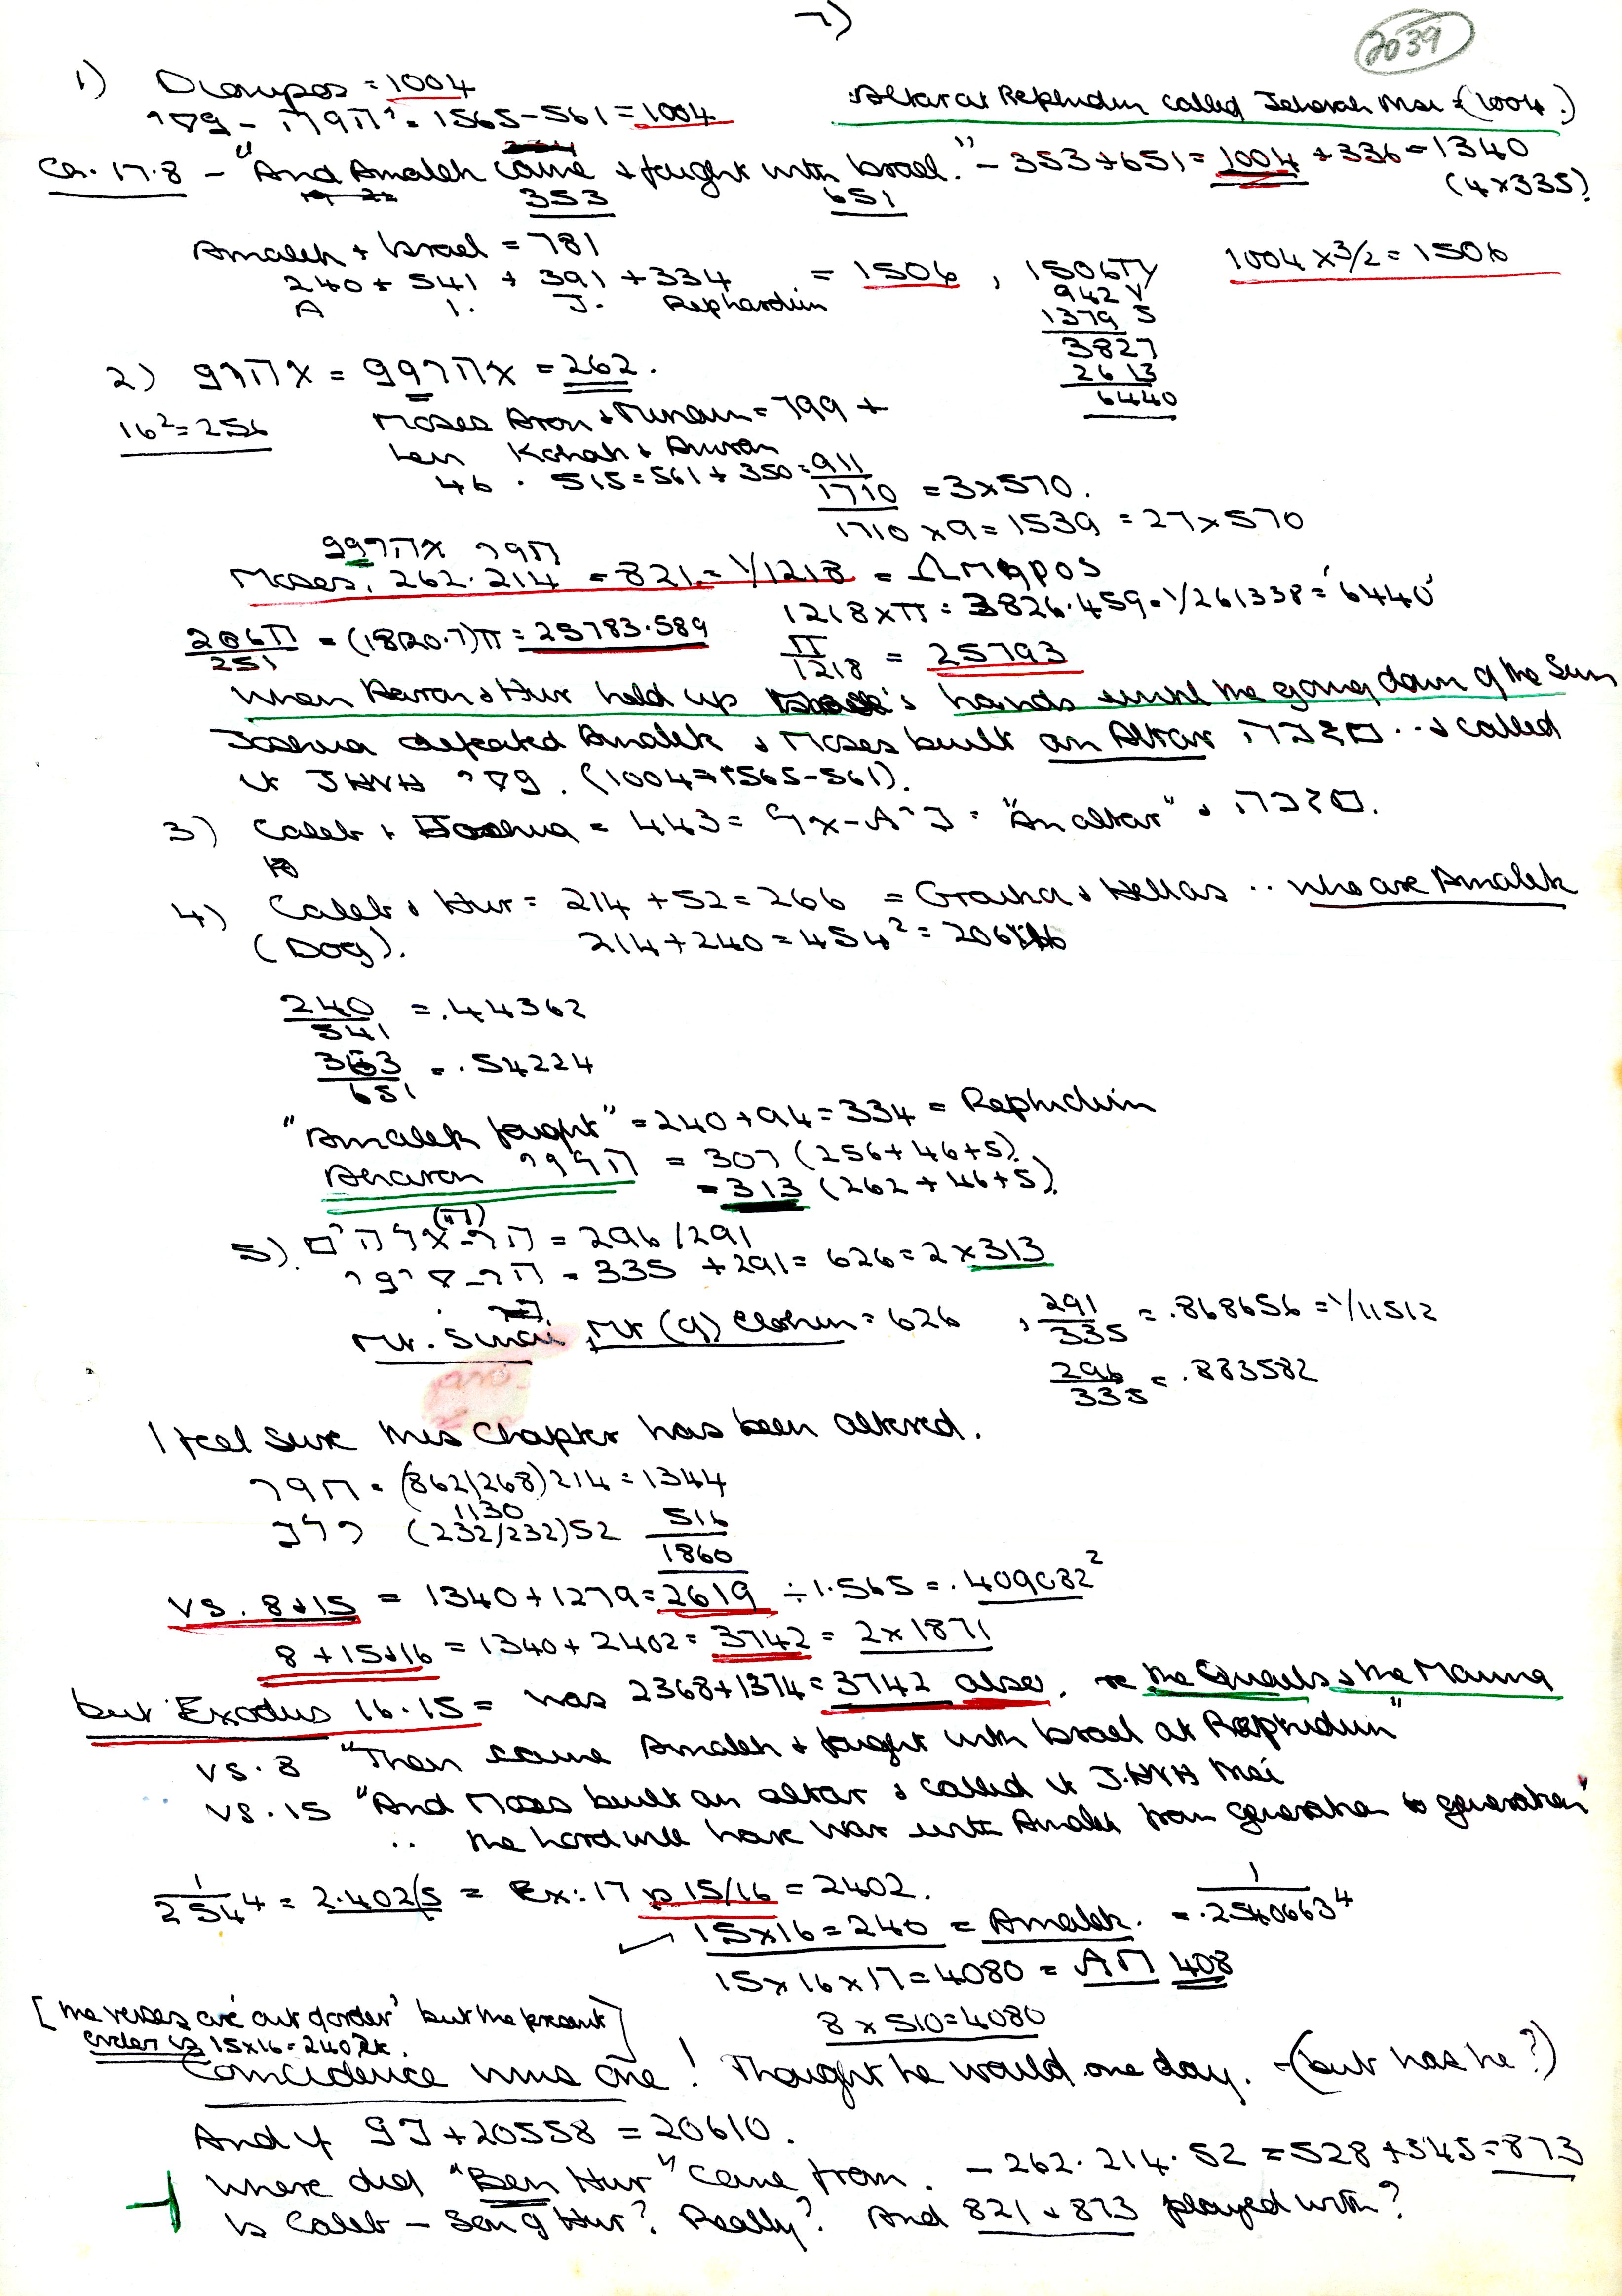 7)
2039
1) = 1004
1565-561=1004
Altar at Rephidim called Jehovah Nisi = (1004.)
Ch. 17.8 - "And Amalek came + fought with Israel." - 353+651=1004+336=1340
353 651 (4x335)
Amalek + Israel = 781
240 + 541 + 391 + 334 = 1506, 1506TY 1004 x 3/2 = 1506
A I. J. Rephaidim
942 Y
1379 5
3827
2613
6440
2) = 262.
16²=256
Moses Aron + Miriam = 799 +
Levi Kohath + Amran
46 . 515=561+350=911
1710 = 3x570.
1710 x 9 = 1539 = 27x570
Moses. 262.214 = 821 = 1/1218 = Ωμηρος
1218xπ = 3826.459 = 1/261338 = '6440'
206π/251 = (1820.7)π = 25783.589
π/1218 = 25793
When Aaron & Hur held up hands until the going down of the Sun
Joshua defeated Amalek & Moses built an Altar .. & called
it JHVH . (1004=1565-561).
3) Caleb + Joshua = 443 = "An altar" &
4) Caleb & Hur = 214 + 52 = 266 = Graika & Hellas .. who are Amalek
(Dog). 214+240=454² =
240/541 = .44362
353/651 = .54224
"Amalek fought" = 240+94=334 = Rephidim
Aharon = 307 (256+46+5)
= 313 (262+46+5)
5). = 296/291
= 335 + 291 = 626 = 2x313
Mt. Sinai, Mt (of) Elohim = 626 , 291/335 = .868656 = 1/11512
296/335 = .883582
I feel sure this Chapter has been altered.
(862/268) 214 = 1344
1130
(232/232) 52 516
1860
vs. 8+15 = 1340+1279=2619 ÷ 1.565 = .409082²
8+15+16 = 1340+2402=3742 = 2x1871
but Exodus 16.15 = has 2368+1374=3742 also. re the Quails & the Manna
vs. 8 "Then came Amalek & fought with Israel at Rephidim"
vs. 15 "And Moses built an altar & called it J.HVH Nisi
.. the Lord will have war with Amalek from generation to generation"
1/254⁴ = 2.402/5 = Ex: 17 vs 15/16 = 2402.
15x16=240 = Amalek. = 1/.2540663⁴
15x16x17=4080 = 408
8 x 510=4080
[the verses are 'out of order' but the present]
order is 15x16=240
Coincidence wins one! Thought he would one day. -(but has he?)
And if +20558 = 20610.
Where did "Ben Hur" come from. - 262.214.52 = 528+345=873
Is Caleb - Son of Hur? Really? And 821 & 873 played with?